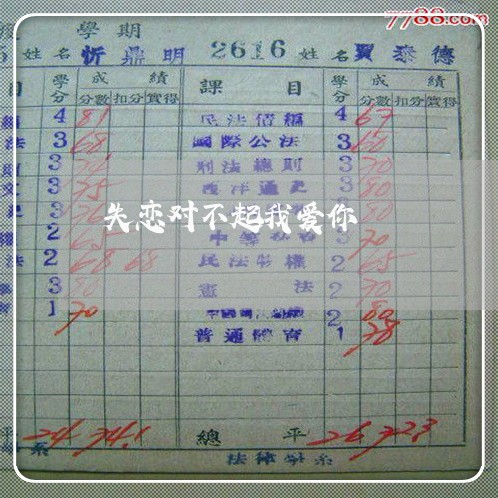 7788.com
度 學期
5 姓名 忻鼎明 2616 姓名 賈泰德
目 學分 成績 分數 扣分 實得 課目 學分 成績 分數 扣分 實得
4 81 民法債編 4 67
法 3 68 國際公法 3 60
3 刑法總則 3 70
3 75 西洋通史 3 80
3 80
失恋对不起我爱你
2 3 70
法 2 68 68 民法物權 2 65
3 80 憲法 2 70
1 70 2 80
普通體育 1 78
平 24 74.1 總平 26 72.3
系 法律學系